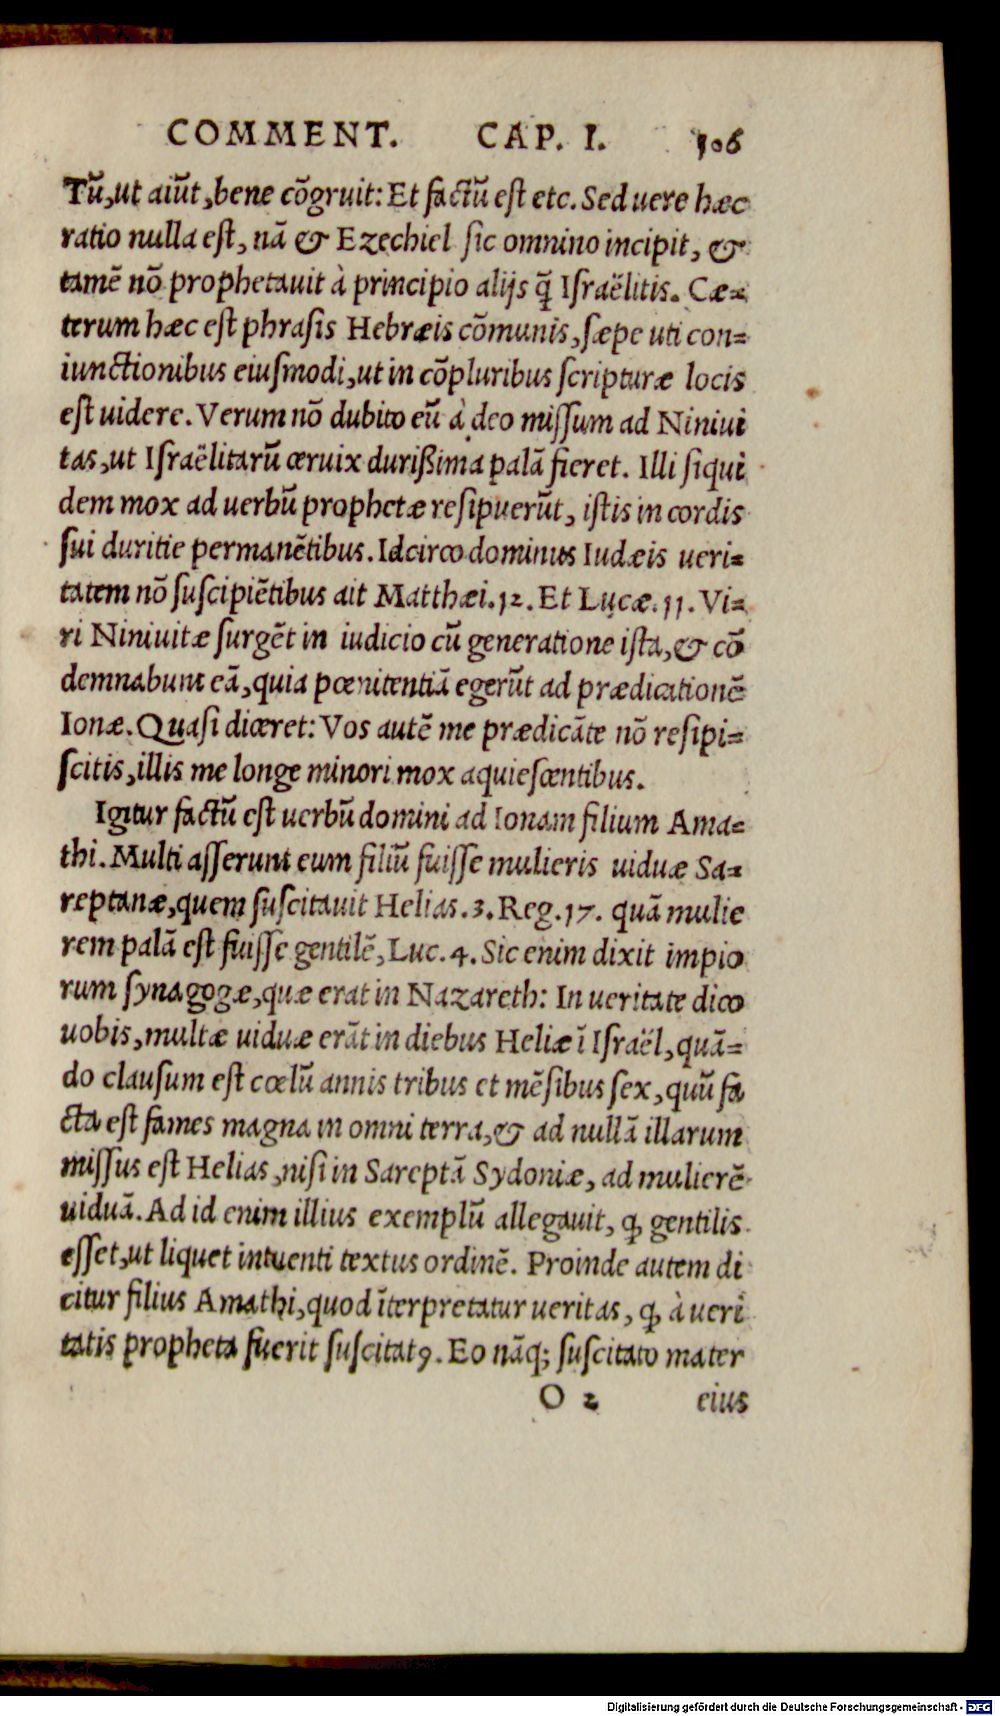 COMMENT. CAP. I. 106
Tũ, ut aiũt, bene cõgruit: Et factũ est etc. Sed uere hæc
ratio nulla est, nã & Ezechiel sic omnino incipit, &
tamẽ nõ prophetauit à principio alijs q̃ Israëlitis. Cæ=
terum hæc est phrasis Hebræis cõmunis, sæpe uti con=
iunctionibus eiusmodi, ut in cõpluribus scripturæ locis
est uidere. Verum nõ dubito eũ à deo missum ad Niniui
tas, ut Israëlitarũ ceruix durißima palã fieret. Illi siqui
dem mox ad uerbũ prophetæ resipuerũt, istis in cordis
sui duritie permanẽtibus. Idcirco dominus Iudæis ueri=
tatem nõ suscipiẽtibus ait Matthæi. 12. Et Lucæ. 11. Vi=
ri Niniuitæ surgẽt in iudicio cũ generatione ista, & cõ
demnabunt eã, quia pœnitentiã egerũt ad prædicationẽ
Ionæ. Quasi diceret: Vos autẽ me prædicãte nõ resipi=
scitis, illis me longe minori mox aquiescentibus.
Igitur factũ est uerbũ domini ad Ionam filium Ama=
thi. Multi asserunt eum filiũ fuisse mulieris uiduæ Sa=
reptanæ, quem suscitauit Helias. 3. Reg. 17. quã mulie
rem palã est fuisse gentilẽ, Luc. 4. Sic enim dixit impio
rum synagogæ, quæ erat in Nazareth: In ueritate dico
uobis, multæ uiduæ erãt in diebus Heliæ ĩ Israël, quã=
do clausum est cœlũ annis tribus et mẽsibus sex, quũ fa
cta est fames magna in omni terra, & ad nullã illarum
missus est Helias, nisi in Sareptã Sydoniæ, ad mulierẽ
uiduã. Ad id enim illius exemplũ allegauit, ꝙ gentilis
esset, ut liquet intuenti textus ordinẽ. Proinde autem di
citur filius Amathi, quod ĩterpretatur ueritas, ꝙ à ueri
tatis propheta fuerit suscitatꝰ. Eo nãq; suscitato mater
O 2 eius
Digitalisierung gefördert durch die Deutsche Forschungsgemeinschaft - DFG